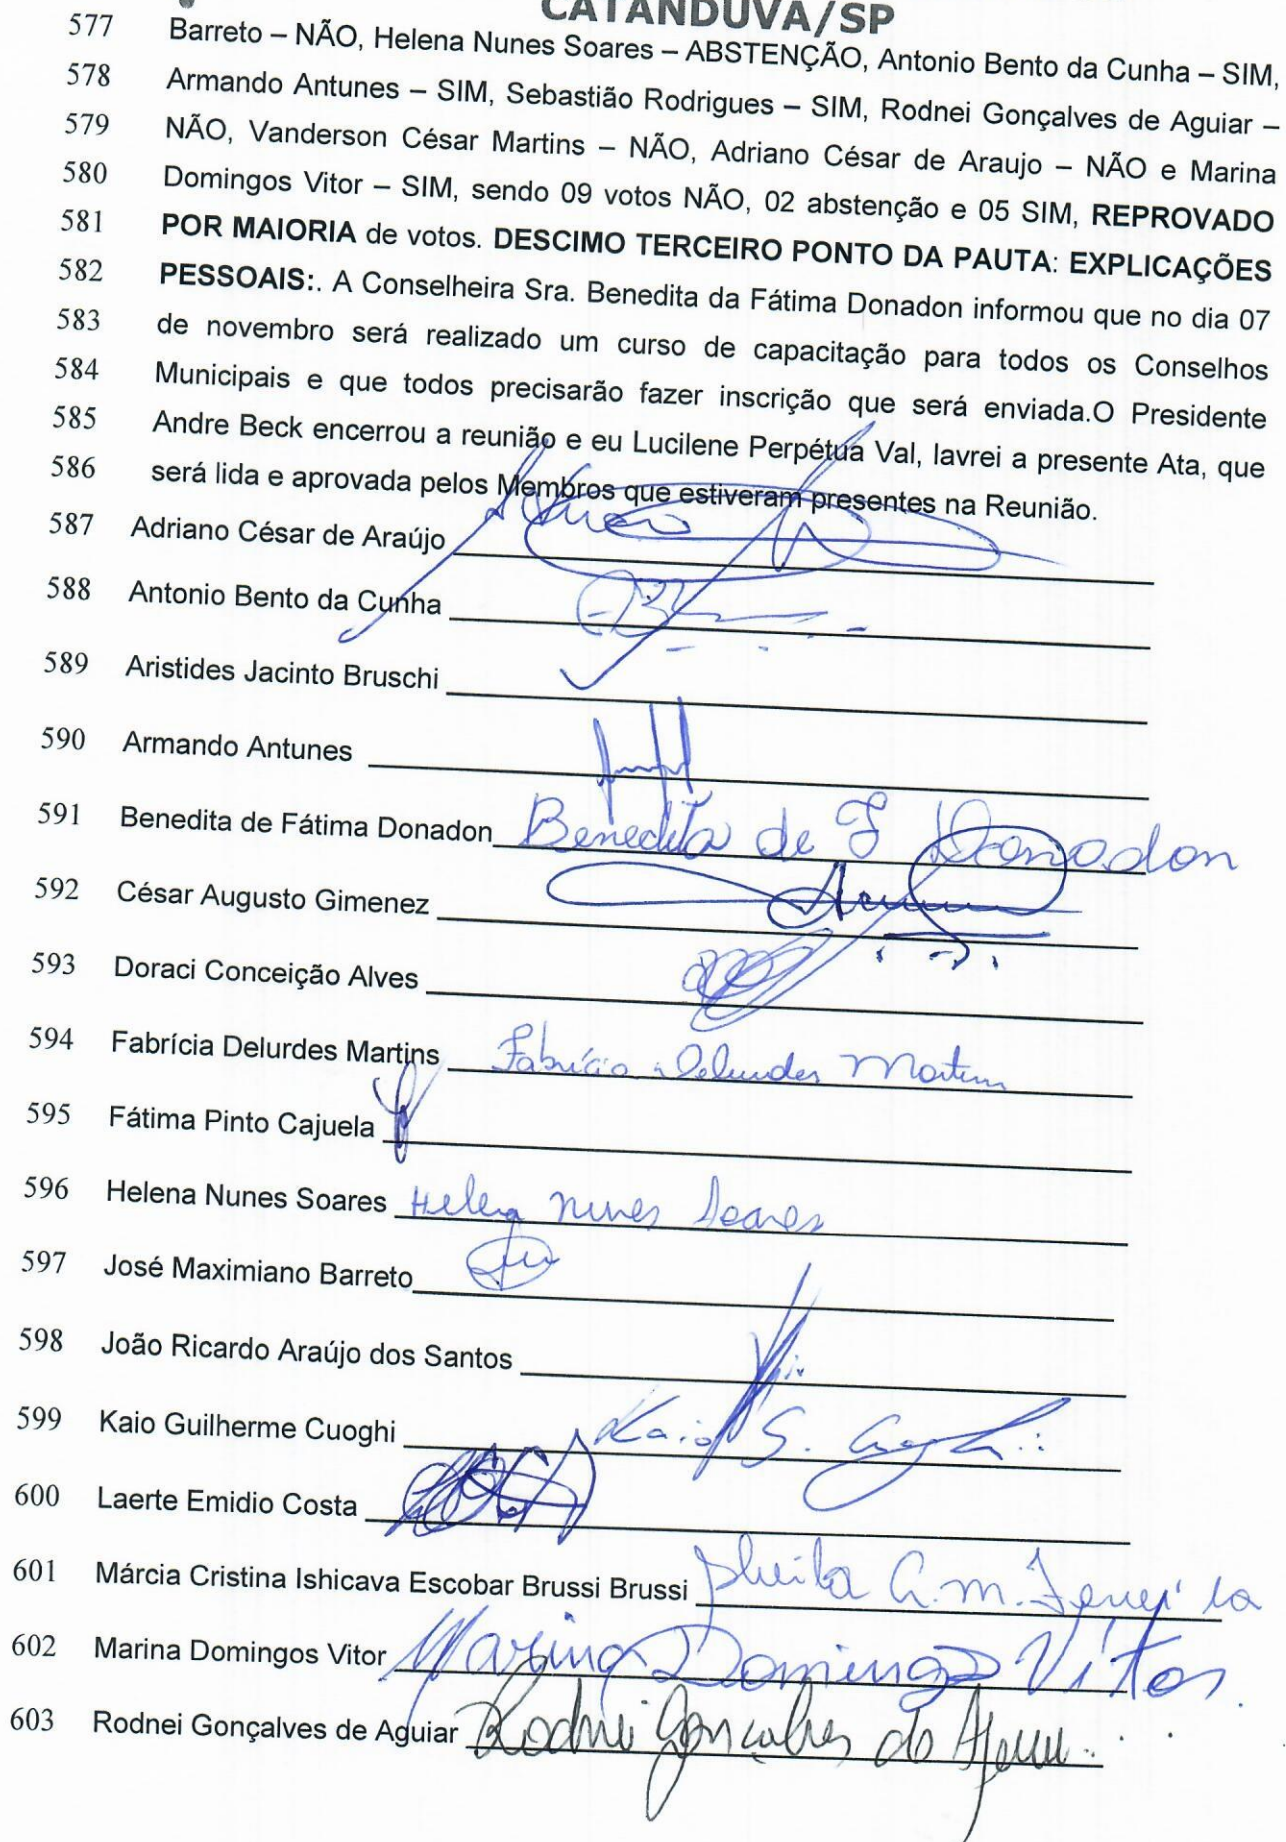 CATANDUVA/SP
577 Barreto – NÃO, Helena Nunes Soares – ABSTENÇÃO, Antonio Bento da Cunha – SIM,
578 Armando Antunes – SIM, Sebastião Rodrigues – SIM, Rodnei Gonçalves de Aguiar –
579 NÃO, Vanderson César Martins – NÃO, Adriano César de Araujo – NÃO e Marina
580 Domingos Vitor – SIM, sendo 09 votos NÃO, 02 abstenção e 05 SIM, REPROVADO
581 POR MAIORIA de votos. DESCIMO TERCEIRO PONTO DA PAUTA: EXPLICAÇÕES
582 PESSOAIS:. A Conselheira Sra. Benedita da Fátima Donadon informou que no dia 07
583 de novembro será realizado um curso de capacitação para todos os Conselhos
584 Municipais e que todos precisarão fazer inscrição que será enviada.O Presidente
585 Andre Beck encerrou a reunião e eu Lucilene Perpétua Val, lavrei a presente Ata, que
586 será lida e aprovada pelos Membros que estiveram presentes na Reunião.
587 Adriano César de Araújo
588 Antonio Bento da Cunha
589 Aristides Jacinto Bruschi
590 Armando Antunes
591 Benedita de Fátima Donadon Benedita de F Donadon
592 César Augusto Gimenez
593 Doraci Conceição Alves
594 Fabrícia Delurdes Martins Fabrícia Delurdes Martins
595 Fátima Pinto Cajuela
596 Helena Nunes Soares Helena Nunes Soares
597 José Maximiano Barreto
598 João Ricardo Araújo dos Santos
599 Kaio Guilherme Cuoghi Kaio G. Cuoghi
600 Laerte Emidio Costa
601 Márcia Cristina Ishicava Escobar Brussi Brussi Sheila A. M. Ferreira
602 Marina Domingos Vitor Marina Domingos Vitor.
603 Rodnei Gonçalves de Aguiar Rodnei Gonçalves de Aguiar